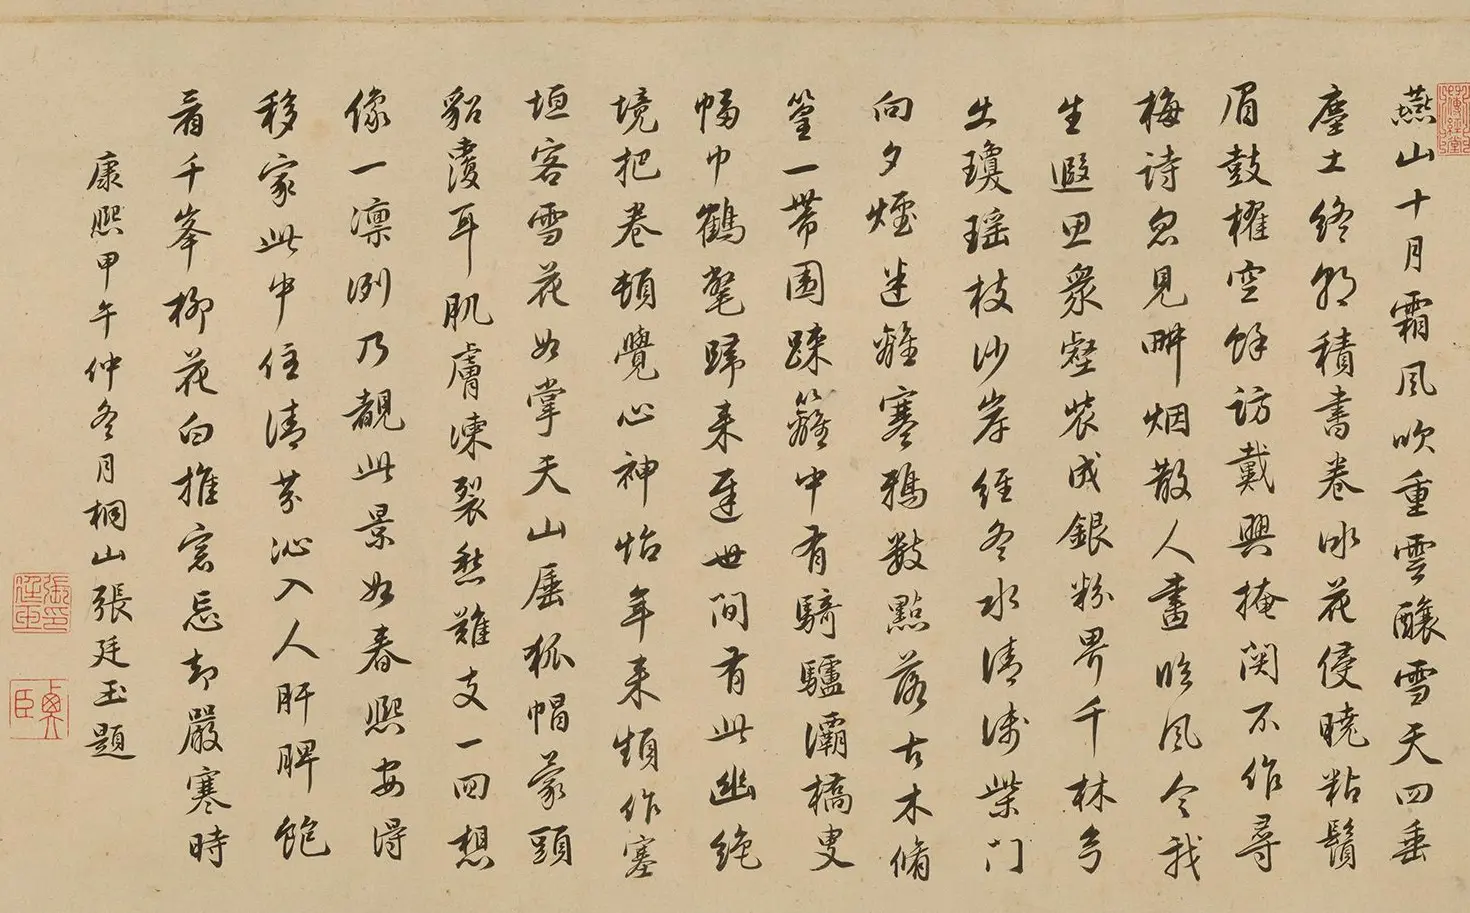 燕山十月霜風吹重雲釀雪天四垂
塵土終朝積書卷冰花侵曉粘鬚
眉鼓櫂空餘訪戴興掩関不作尋
梅詩忽見畊烟散人畫臨風令我
生遐思衆壑裝成銀粉界千林身
出瓊瑤枝沙岸經冬水清淺柴門
向夕煙迷離寒鴉數點落古木脩
篁一帶圍踈籬中有騎驢灞橋叟
幅巾鶴氅歸来遲世間有此幽絶
境把卷頓覺心神怡年来頻作塞
垣客雪花如掌天山厓狐帽蒙頭
貂覆耳肌膚凍裂愁難支一回想
像一凛冽乃覩此景如春熙安得
移家此中住清芬沁入人肝脾飽
看千峯柳花白推窓忘却嚴寒時
康熙甲午仲冬月桐山張廷玉題
張廷玉印